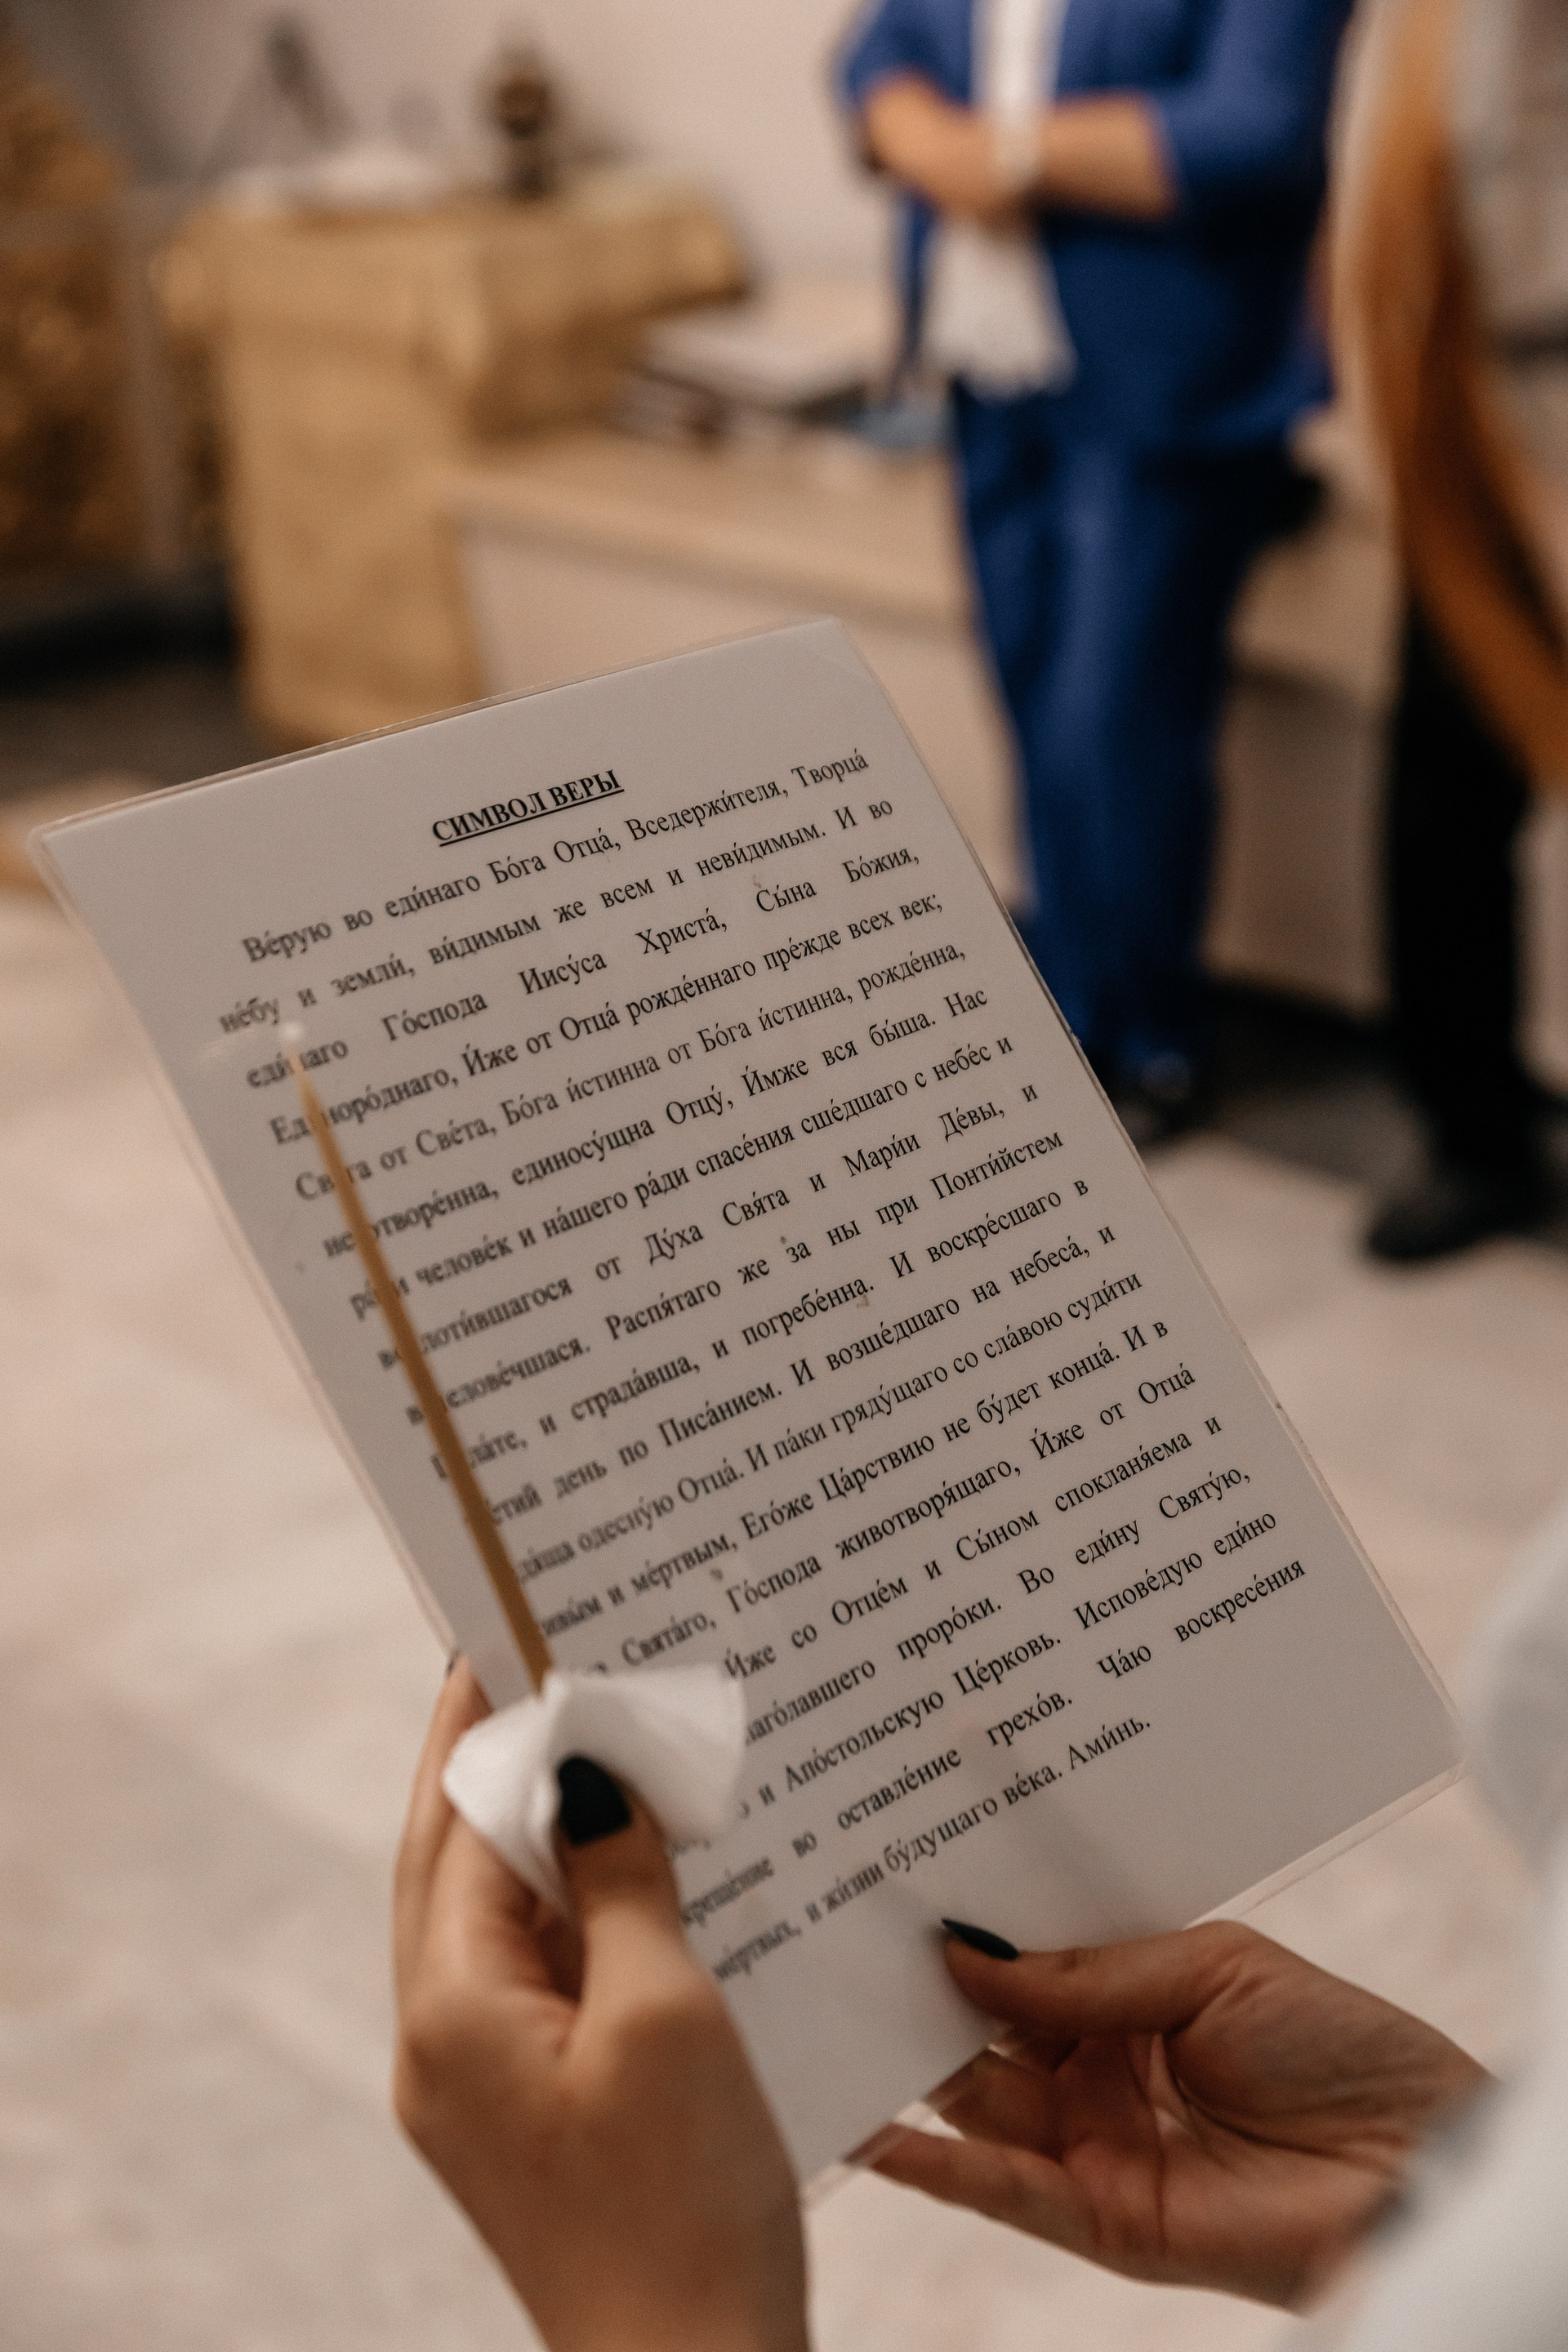 СИМВОЛ ВЕРЫ
Ве́рую во еди́наго Бо́га Отца́, Вседержи́теля, Творца́
не́бу и земли́, ви́димым же всем и неви́димым. И во
Го́спода Иису́са Христа́, Сы́на Бо́жия,
И́же от Отца́ рожде́ннаго пре́жде всех век;
от Све́та, Бо́га и́стинна от Бо́га и́стинна, рожде́нна,
единосу́щна Отцу́, И́мже вся бы́ша. Нас
челове́к и на́шего ра́ди спасе́ния сше́дшаго с небе́с и
от Ду́ха Свя́та и Мари́и Де́вы, и
Распя́таго же за ны при Понти́йстем
и страда́вша, и погребе́нна. И воскре́сшаго в
день по Писа́нием. И возше́дшаго на небеса́, и
одесну́ю Отца́. И па́ки гряду́щаго со сла́вою суди́ти
и ме́ртвым, Его́же Ца́рствию не бу́дет конца́. И в
Свята́го, Го́спода животворя́щаго, И́же от Отца́
И́же со Отце́м и Сы́ном спокланя́ема и
проро́ки. Во еди́ну Святу́ю,
и Апо́стольскую Це́рковь. Испове́дую еди́но
во оставле́ние грехо́в. Ча́ю воскресе́ния
ме́ртвых, и жи́зни бу́дущаго ве́ка. Ами́нь.